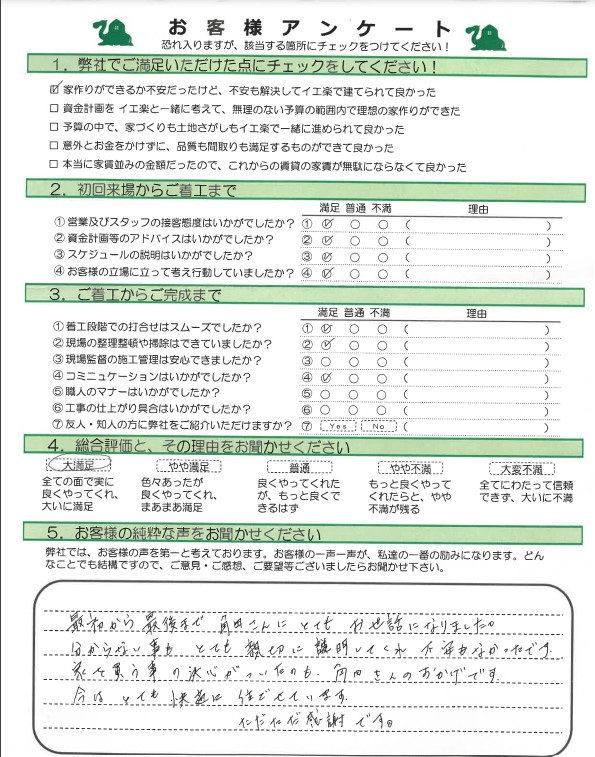 お客様アンケート
恐れ入りますが、該当する箇所にチェックをつけてください！
1．弊社でご満足いただけた点にチェックをしてください！
☑ 家作りができるか不安だったけど、不安も解決してイエ楽で建てられて良かった
□ 資金計画を イエ楽と一緒に考えて、無理のない予算の範囲内で理想の家作りができた
□ 予算の中で、家づくりも土地さがしもイエ楽で一緒に進められて良かった
□ 意外とお金をかけずに、品質も間取りも満足するものができて良かった
□ 本当に家賃並みの金額だったので、これからの賃貸の家賃が無駄にならなくて良かった
2．初回来場からご着工まで
満足 普通 不満 理由
① 営業及びスタッフの接客態度はいかがでしたか？ ① ☑ ○ ○ （ ）
② 資金計画等のアドバイスはいかがでしたか？ ② ☑ ○ ○ （ ）
③ スケジュールの説明はいかがでしたか？ ③ ☑ ○ ○ （ ）
④ お客様の立場に立って考え行動していましたか？ ④ ☑ ○ ○ （ ）
3．ご着工からご完成まで
満足 普通 不満 理由
① 着工段階での打合せはスムーズでしたか？ ① ☑ ○ ○ （ ）
② 現場の整理整頓や掃除はできていましたか？ ② ☑ ○ ○ （ ）
③ 現場監督の施工管理は安心できましたか？ ③ ○ ○ ○ （ ）
④ コミニュケーションはいかがでしたか？ ④ ☑ ○ ○ （ ）
⑤ 職人のマナーはいかがでしたか？ ⑤ ○ ○ ○ （ ）
⑥ 工事の仕上がり具合はいかがでしたか？ ⑥ ○ ○ ○ （ ）
⑦ 友人・知人の方に弊社をご紹介いただけますか？ ⑦ Yes No （ ）
4．総合評価と、その理由をお聞かせください
大満足 やや満足 普通 やや不満 大変不満
全ての面で実に 色々あったが 良くやってくれた もっと良くやって 全てにわたって信頼
良くやってくれ、 良くやってくれ、 が、もっと良くで くれたらと、やや できず、大いに不満
大いに満足 まあまあ満足 きるはず 不満が残る
5．お客様の純粋な声をお聞かせください
弊社では、お客様の声を第一と考えております。お客様の一声一声が、私達の一番の励みになります。どん
なことでも結構ですので、ご意見・ご感想、ご要望等ございましたらお聞かせ下さい。
最初から最後まで 角田さんに とても お世話になりました。
わからない事も とても 親切に 説明してくれ 不安もなかったです。
家を買う事の決心がついたのも、角田さんのおかげです。
今は とても 快適に 住めています。
ただただ感謝です。